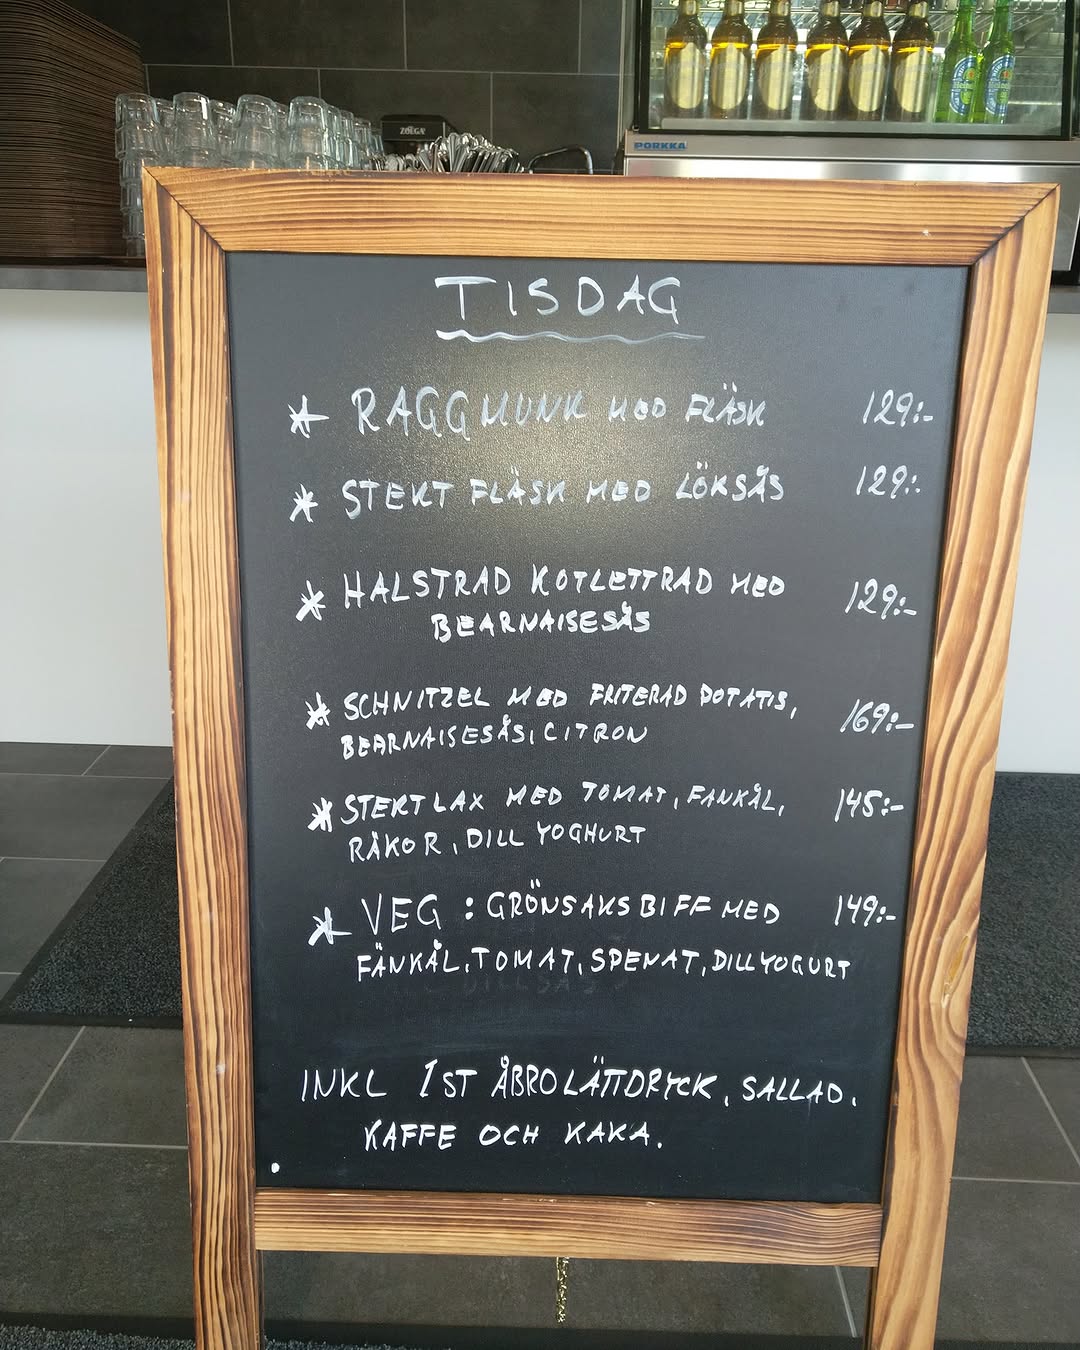 ZOÉGA
PORKKA
Heineken
TISDAG
* RAGGMUNK MED FLÄSK 129:-
* STEKT FLÄSK MED LÖKSÅS 129:-
* HALSTRAD KOTLETTRAD MED 129:-
BEARNAISESÅS
* SCHNITZEL MED FRITERAD POTATIS, 169:-
BEARNAISESÅS, CITRON
* STEKT LAX MED TOMAT, FÄNKÅL, 145:-
RÄKOR, DILL YOGHURT
* VEG : GRÖNSAKSBIFF MED 149:-
FÄNKÅL, TOMAT, SPENAT, DILLYOGURT
INKL 1ST ÅBRO LÄTTDRYCK, SALLAD,
KAFFE OCH KAKA.